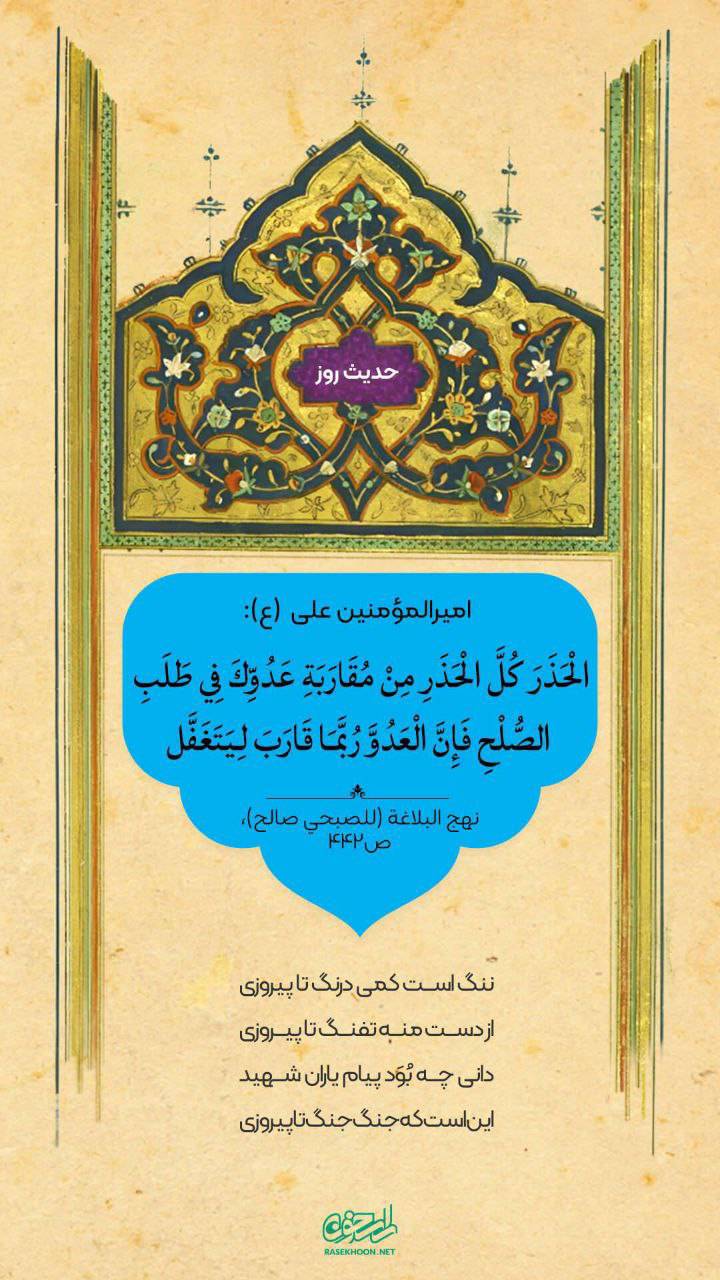 حدیث روز
امیرالمؤمنین علی (ع):
الْحَذَرَ كُلَّ الْحَذَرِ مِنْ مُقَارَبَةِ عَدُوِّكَ فِي طَلَبِ
الصُّلْحِ فَإِنَّ الْعَدُوَّ رُبَّمَا قَارَبَ لِيَتَغَفَّل
نهج البلاغة (للصبحي صالح)،
ص۴۴۲
ننگ است کمی درنگ تا پیروزی
از دست منه تفنگ تا پیروزی
دانی چه بُوَد پیام یاران شهید
این است که جنگ جنگ تا پیروزی
راسخون
RASEKHOON.NET